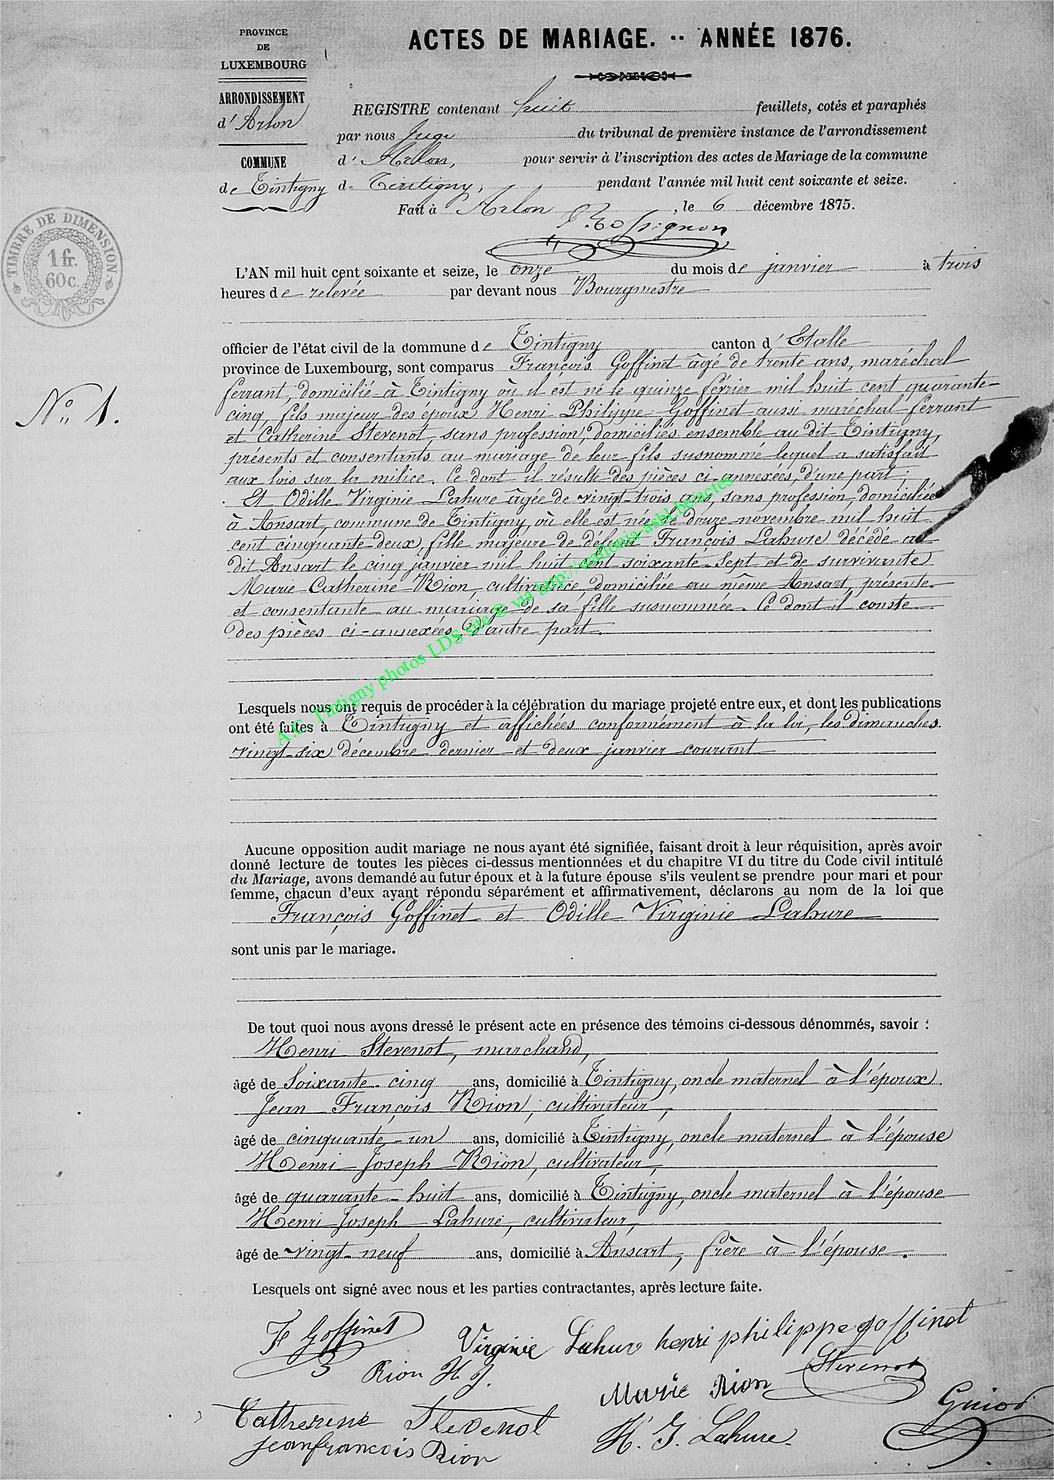 PROVINCE
DE
LUXEMBOURG
ARRONDISSEMENT
d'Arlon
COMMUNE
de Tintigny
TIMBRE DE DIMENSION
1 fr.
60 c.
ACTES DE MARIAGE. -- ANNÉE 1876.
REGISTRE contenant huit feuillets, cotés et paraphés
par nous Juge du tribunal de première instance de l'arrondissement
d'Arlon, pour servir à l'inscription des actes de Mariage de la commune
de Tintigny, pendant l'année mil huit cent soixante et seize.
Fait à Arlon, le 6 décembre 1875.
L'AN mil huit cent soixante et seize, le onze du mois de janvier à trois
heures de relevée par devant nous Bourgmestre
officier de l'état civil de la commune de Tintigny canton d'Etalle
province de Luxembourg, sont comparus François Goffinet âgé de trente ans, maréchal
N° 1.
ferrant, domicilié à Tintigny où il est né le quinze février mil huit cent quarante-
cinq, fils majeur des époux Henri Philippe Goffinet aussi maréchal-ferrant
et Catherine Stevenot, sans profession, domiciliés ensemble au dit Tintigny,
présents et consentants au mariage de leur fils susnommé lequel a satisfait
aux lois sur la milice. Ce dont il résulte des pièces ci-annexées, d'une part;
Et Odille Virginie Lahure âgée de vingt trois ans, sans profession, domiciliée
à Ansart, commune de Tintigny, où elle est née le douze novembre mil huit
cent cinquante-deux, fille majeure de défunt François Lahure décédé au
dit Ansart le cinq janvier mil huit cent soixante-sept et de survivante
Marie Catherine Rion, cultivatrice, domiciliée au même Ansart, présente
et consentante au mariage de sa fille susnommée. Ce dont il conste
des pièces ci-annexées, d'autre part.
A.C. Tintigny photos LDS site
Lesquels nous ont requis de procéder à la célébration du mariage projeté entre eux, et dont les publications
ont été faites à Tintigny et affichées conformément à la loi, les dimanches
vingt-six décembre dernier et deux janvier courant
Aucune opposition audit mariage ne nous ayant été signifiée, faisant droit à leur réquisition, après avoir
donné lecture de toutes les pièces ci-dessus mentionnées et du chapitre VI du titre du Code civil intitulé
du Mariage, avons demandé au futur époux et à la future épouse s'ils veulent se prendre pour mari et pour
femme, chacun d'eux ayant répondu séparément et affirmativement, déclarons au nom de la loi que
François Goffinet et Odille Virginie Lahure
sont unis par le mariage.
De tout quoi nous avons dressé le présent acte en présence des témoins ci-dessous dénommés, savoir :
Henri Stevenot, marchand,
âgé de soixante-cinq ans, domicilié à Tintigny, oncle maternel à l'époux.
Jean François Rion, cultivateur,
âgé de cinquante-un ans, domicilié à Tintigny, oncle maternel à l'épouse
Henri Joseph Rion, cultivateur,
âgé de quarante-huit ans, domicilié à Tintigny, oncle maternel à l'épouse
Henri Joseph Lahure, cultivateur,
âgé de vingt-neuf ans, domicilié à Ansart, frère à l'épouse.
Lesquels ont signé avec nous et les parties contractantes, après lecture faite.
F Goffinet
Virginie Lahure henri philippe goffinet
Rion H. J.
Stevenot
Marie Rion
Guiot
Catherine Stevenot
H. J. Lahure.
jeanfrancois Rion